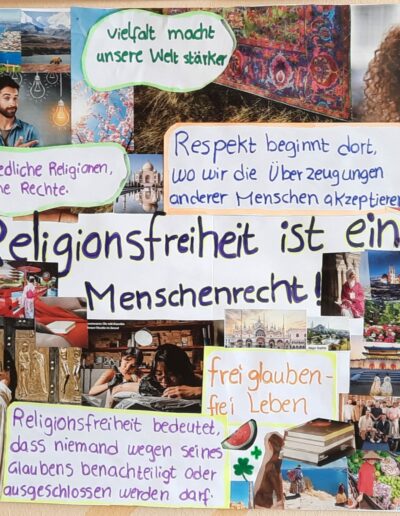 vielfalt macht
unsere Welt stärker
Respekt beginnt dort,
wo wir die Überzeugungen
anderer Menschen akzeptieren
Religionen,
Rechte.
Religionsfreiheit ist ein
Menschenrecht!
frei glauben-
frei Leben
Religionsfreiheit bedeutet,
dass niemand wegen seines
Glaubens benachteiligt oder
ausgeschlossen werden darf.